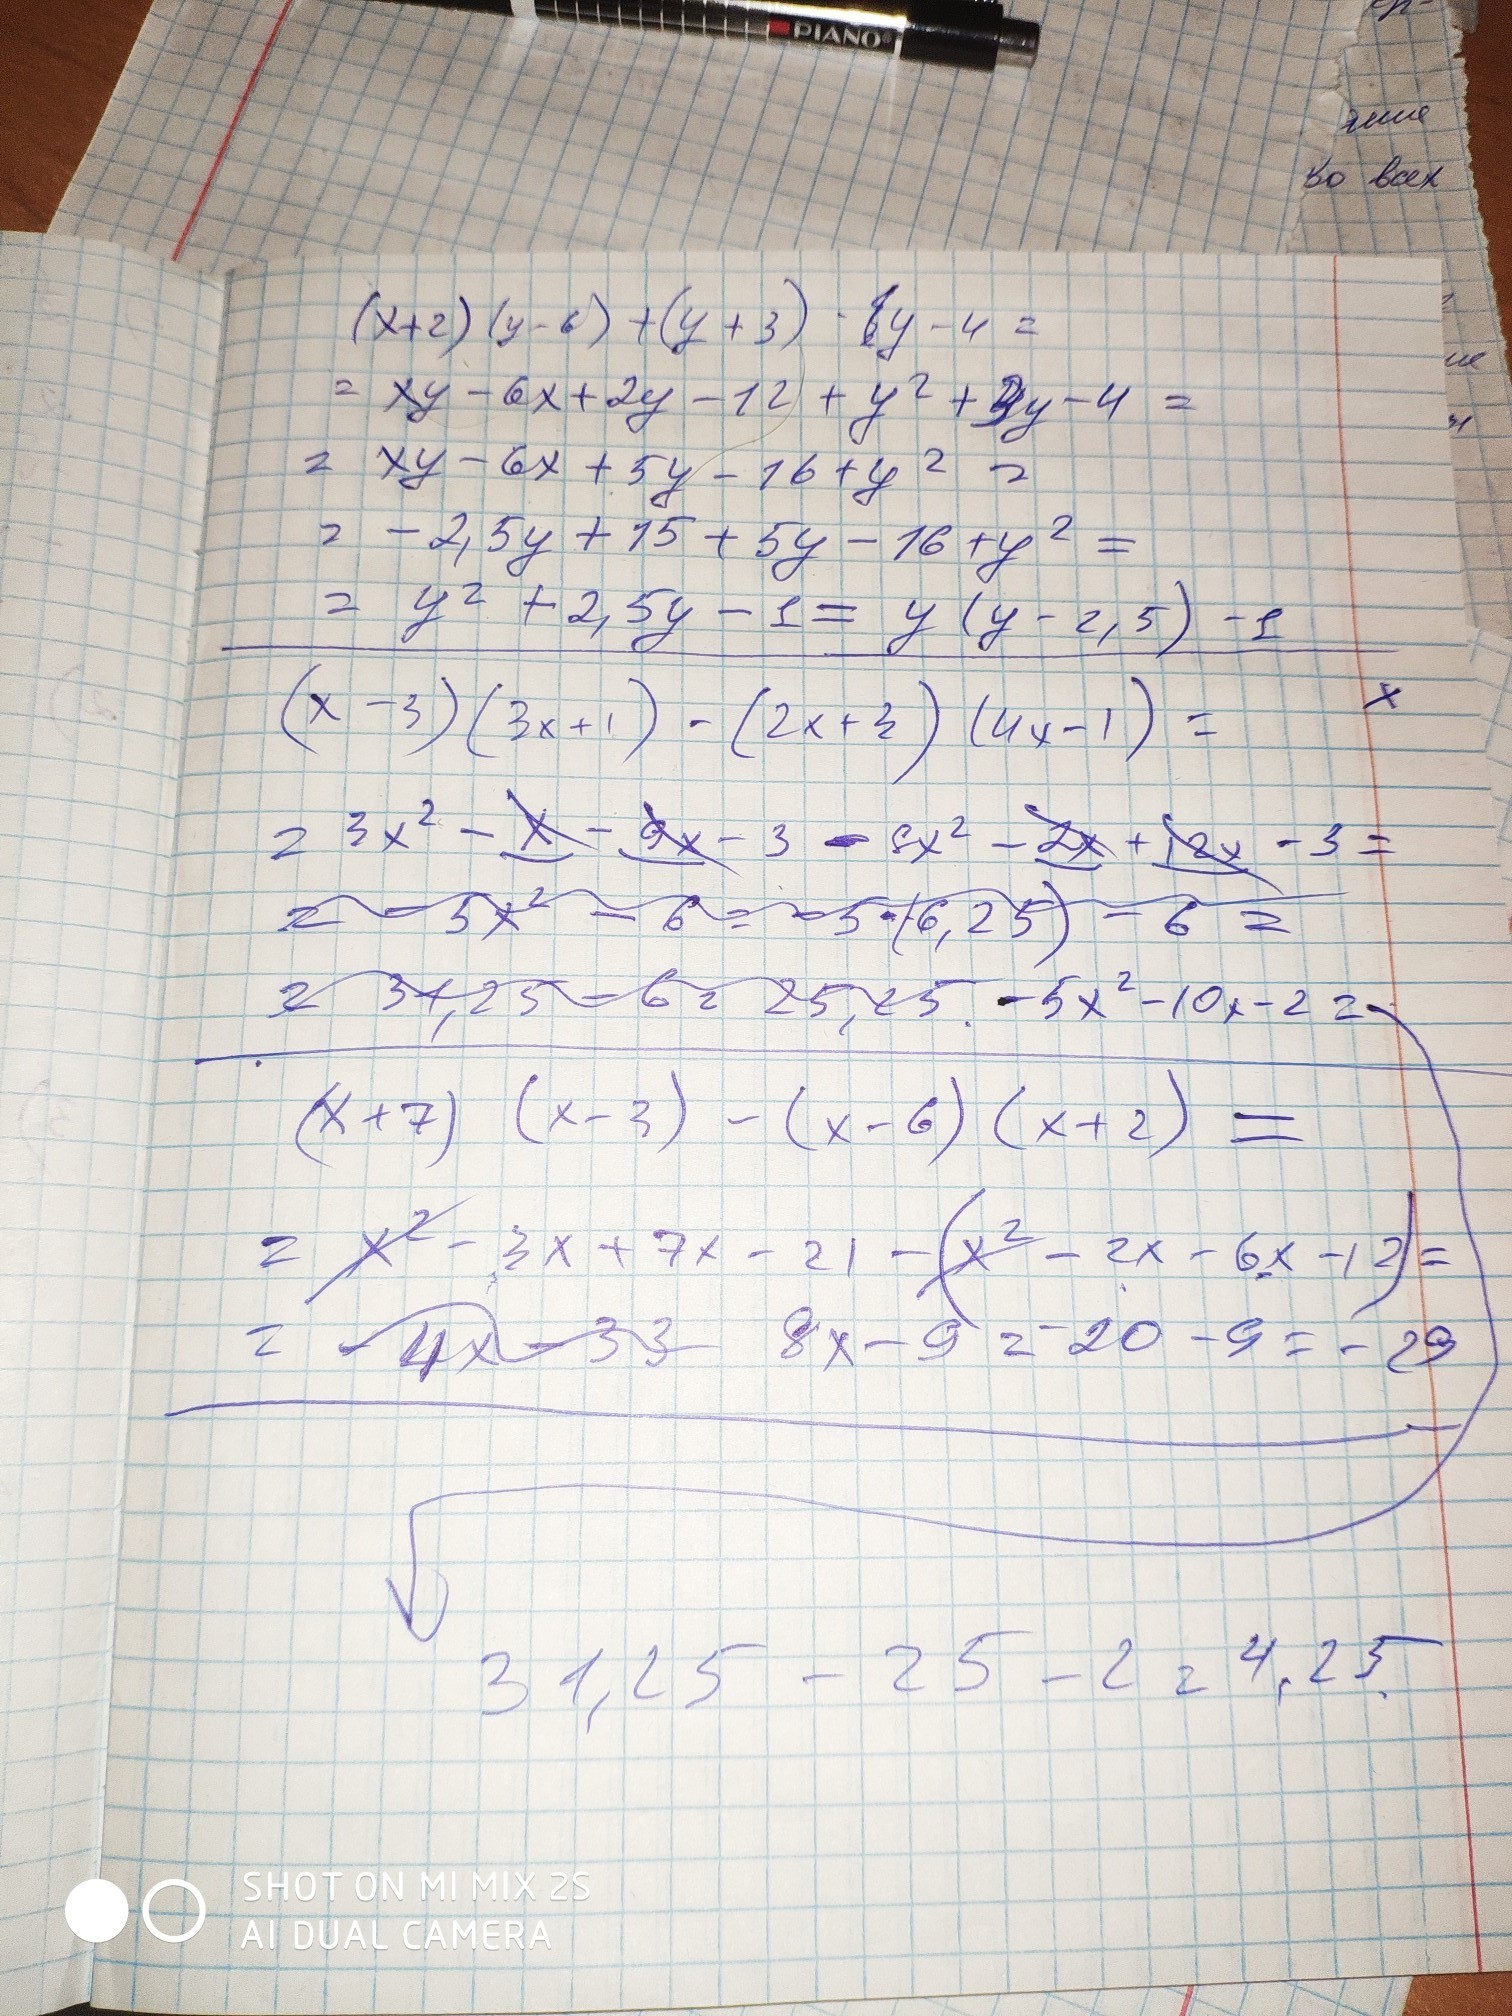 PIANO
во всех
(x+2)(y-6)+(y+3)·y-4=
=xy-6x+2y-12+y²+3y-4=
=xy-6x+5y-16+y²=
=-2,5y+15+5y-16+y²=
=y²+2,5y-1=y(y-2,5)-1
x
(x-3)(3x+1)-(2x+3)(4x-1)=
=3x²-x-9x-3-8x²-2x+12x-3=
=-5x²-6=-5·(6,25)-6=
=31,25-6=25,25.-5x²-10x-2=
(x+7)(x-3)-(x-6)(x+2)=
=x²-3x+7x-21-(x²-2x-6x-12)=
=-4x-33 8x-9=-20-9=-29
31,25-25-2=4,25.
SHOT ON MI MIX 2S
AI DUAL CAMERA